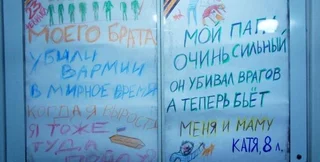 23
МОЕГО БРАТА
УБИЛИ
В АРМИИ
В МИРНОЕ ВРЕМЯ
КОГДА Я ВЫРОСТУ
Я ТОЖЕ
ТУДА
МОЙ ПАПА
ОЧИНЬ СИЛЬНЫЙ
ОН УБИВАЛ ВРАГОВ
А ТЕПЕРЬ БЬЁТ
МЕНЯ И МАМУ
КАТЯ, 8 л.